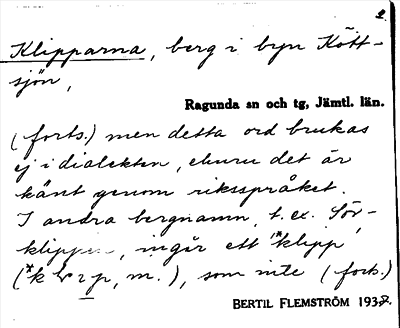 2.
Klipparna, berg i byn Kött-
sjön,
Ragunda sn och tg, Jämtl. län.
(forts.) men detta ord brukas
ej i dialekten, ehuru det är
känt genom riksspråket.
I andra bergnamn, t. ex. Sör-
klippen, ingår ett *klipp,
m.), som inte (forts.)
BERTIL FLEMSTRÖM 1937.